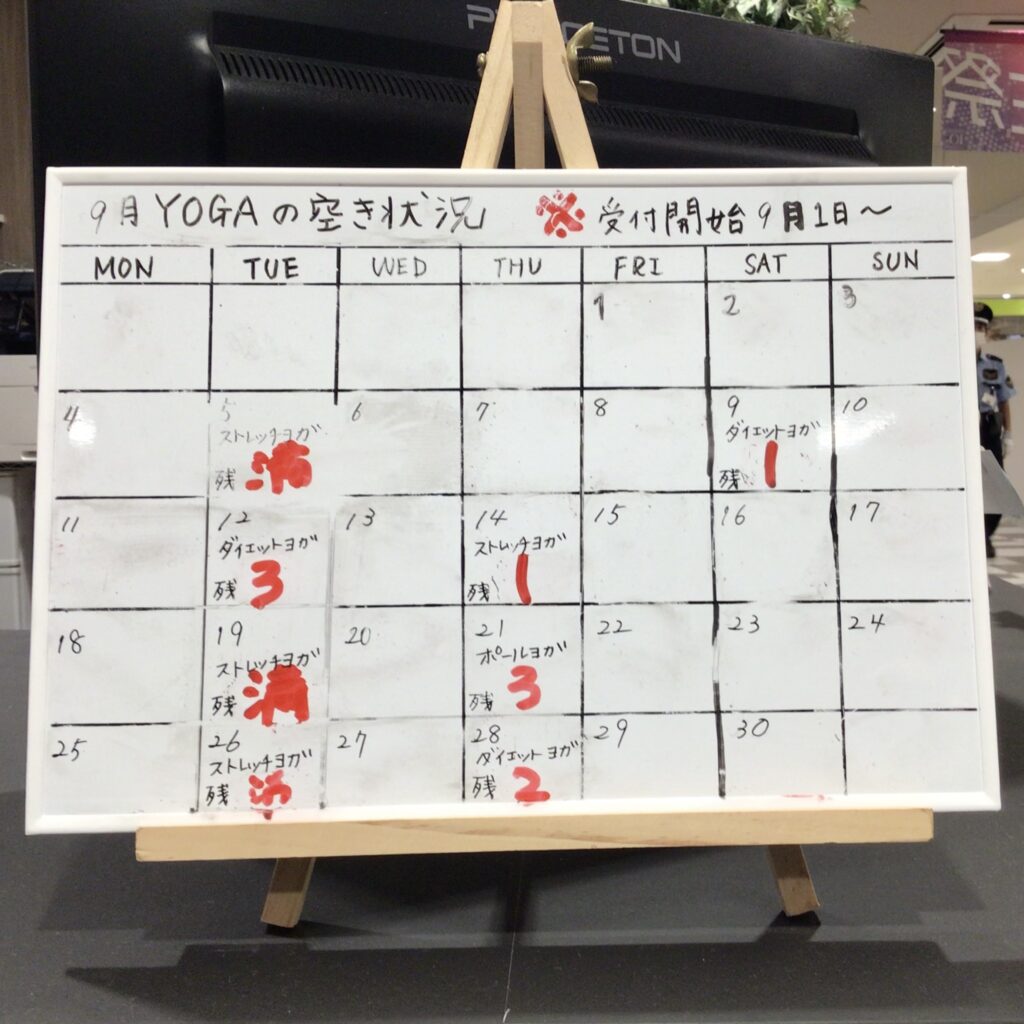 PRINCETON
祭
9月YOGAの空き状況 ※受付開始9月1日〜
MON TUE WED THU FRI SAT SUN
1 2 3
4 5 6 7 8 9 10
ストレッチヨガ ダイエットヨガ
残 満 残 1
11 12 13 14 15 16 17
ダイエットヨガ ストレッチヨガ
残 3 残 1
18 19 20 21 22 23 24
ストレッチヨガ ポールヨガ
残 満 残 3
25 26 27 28 29 30
ストレッチヨガ ダイエットヨガ
残 満 残 2